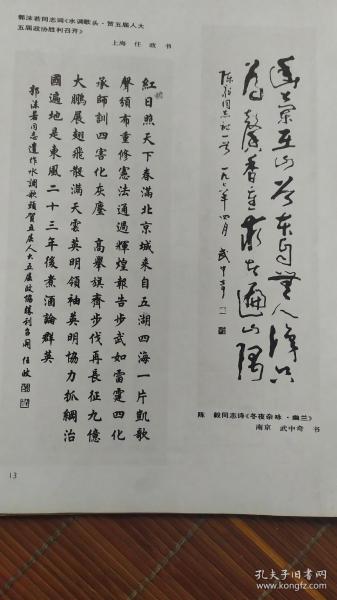 郭沫若同志词《水调歌头·贺五届人大
五届政协胜利召开》
上海 任政 书
紅日照天下春滿北京城来自五湖四海一片凱歌
聲頒布重修憲法通過輝煌報告步武如雷霆四化
承師訓四害化灰塵 高舉旗齊步伐再長征九億
大鵬展翅飛散滿天雲英明領袖英明協力抓綱治
國遍地是東風二十三年後煮酒論群英
郭沫若同志遺作水調歌頭賀五届人大五届政協勝利召開 任政
幽蘭在山谷本自無人識只
为馨香重求者遍山隅
陈毅同志詩一首 一九七八年四月 武中奇
陈 毅同志诗《冬夜杂咏·幽兰》
南京 武中奇 书
13
孔夫子旧书网